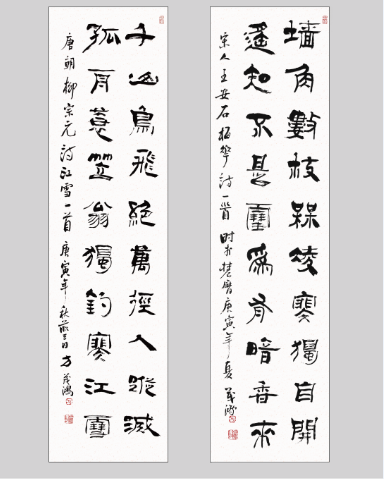 墙角數枝槑凌寒獨自開
遥知不是雪爲有暗香來
宋人王安石梅華诗一首 时于 庚寅年夏 茂鸿
千山鳥飛絕萬徑人蹤滅
孤舟蓑笠翁獨釣寒江雪
唐朝柳宗元诗江雪一首 庚寅年秋前三日 方茂鸿